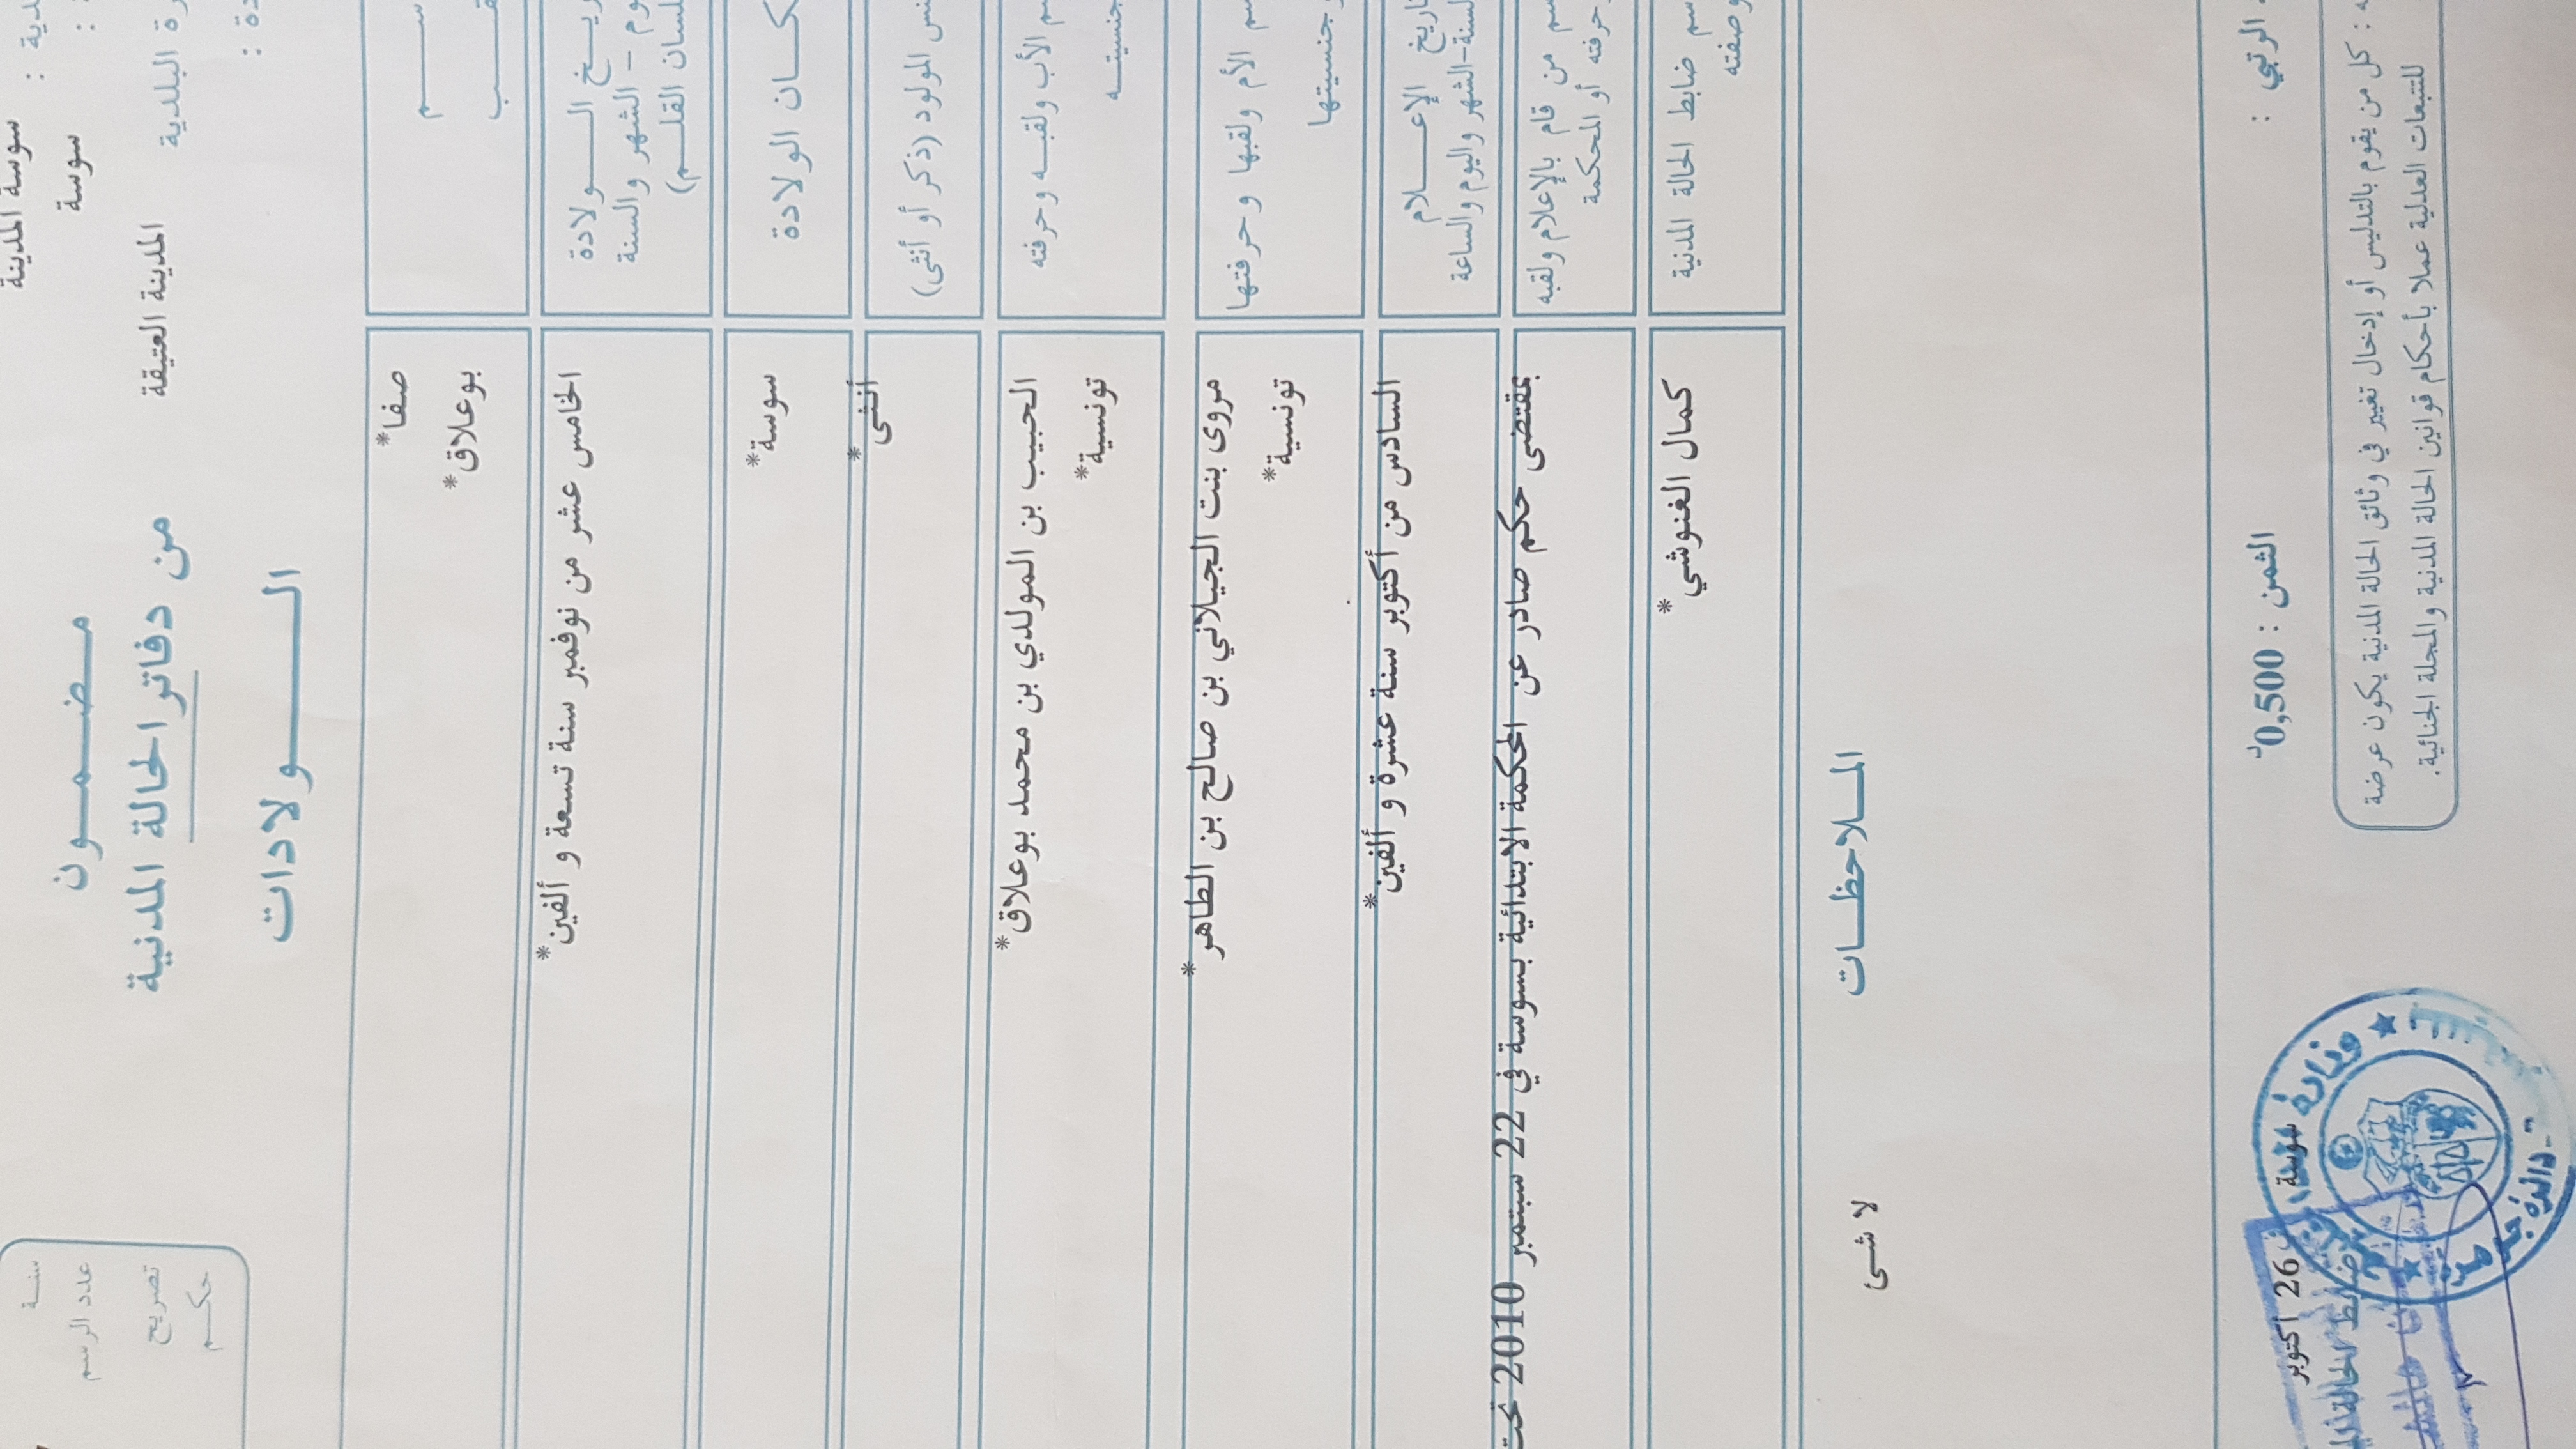 سوسة المدينة
: سوسة
المدينة العتيقة
سنة
عدد الرسم
تصريح
حكم
مضمون
من دفاتر الحالة المدنية
الولادات
صفا*
بوعلاق*
الولادة
الشهر والسنة
القلم)
الخامس عشر من نوفمبر سنة تسعة و ألفين*
الولادة
سوسة*
المولود (ذكر أو أنثى)
أنثى*
الأب ولقبه وحرفته
الحبيب بن المولدي بن محمد بوعلاق*
تونسية*
الأم ولقبها وحرفتها
وجنسيتها
مروى بنت الجيلاني بن صالح بن الطاهر*
تونسية*
الإعلام
السنة-الشهر واليوم والساعة
السادس من أكتوبر سنة عشرة و ألفين*
من قام بالإعلام ولقبه
حرفته أو المحكمة
بمقتضى حكم صادر عن المحكمة الابتدائية بسوسة في 22 سبتمبر 2010 تحت
ضابط الحالة المدنية
وصفته
كمال الغنوشي*
الملاحظات
لا شئ
الرتبي :
الثمن : 0,500د
سوسة
26 اكتوبر
ضابط الحالة
وزارة
: كل من يقوم بالتدليس أو إدخال تغيير في وثائق الحالة المدنية يكون عرضة
للتتبعات العدلية عملا بأحكام قوانين الحالة المدنية والمجلة الجنائية.